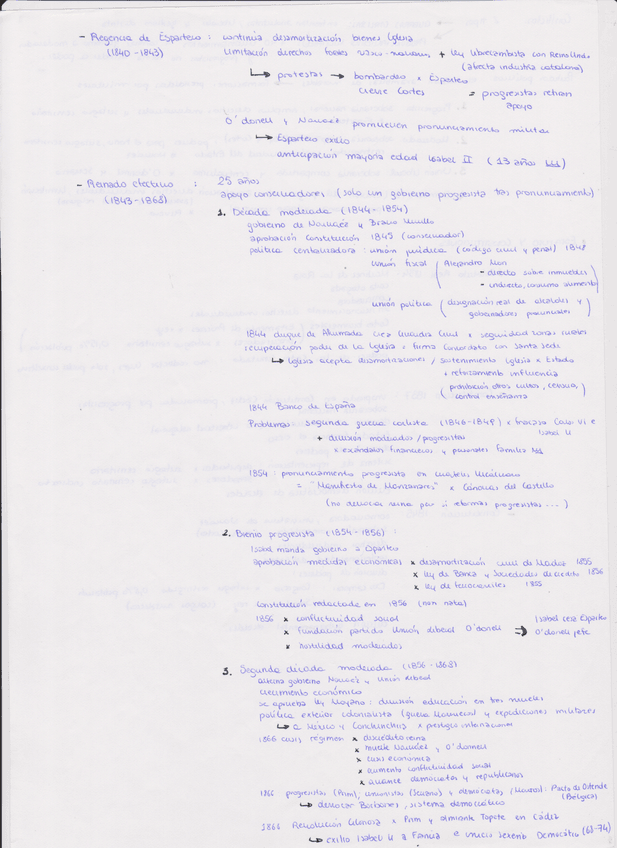 - Regencia de Espartero : continúa desamortización bienes Iglesia
(1840-1843) limitación derechos forales vasco-navarros + ley librecambista con Reino Unido
(afecta industria catalana)
↳ protestas → bombardeo x Espartero
cierre Cortes = progresistas retiran
apoyo
O'donell y Narváez promueven pronunciamiento militar
↳ Espartero exilio
anticipación mayoría edad Isabel II (13 años)
- Reinado efectivo : 25 años
(1843-1868) apoyo conservadores (solo un gobierno progresista tras pronunciamiento)
1. Década moderada (1844-1854)
gobierno de Narváez y Bravo Murillo
aprobación Constitución 1845 (conservador)
política centralizadora: unión jurídica (código civil y penal) 1848
unión fiscal (Alejandro Mon
- directo sobre inmuebles
- indirecto, consumo aumento)
unión política (designación real de alcaldes y
gobernadores provinciales)
1844 duque de Ahumada crea Guardia Civil x seguridad zonas rurales
recuperación poder de la Iglesia x firma Concordato con Santa Sede
↳ Iglesia acepta desamortizaciones / sostenimiento Iglesia x Estado
+ reforzamiento influencia
(prohibición otros cultos, censura,
control enseñanza)
1844 Banco de España
Problemas: segunda guerra carlista (1846-1849) x fracaso Carlos VI e
Isabel II
+ división moderados/progresistas
x escándalos financieros y personales Familia
1854: pronunciamiento progresista en
= "Manifiesto de Manzanares" x Cánovas del Castillo
(no derrocar reina pero sí reformas progresistas...)
2. Bienio progresista (1854-1856) :
Isabel manda gobierno a Espartero
aprobación medidas económicas x desamortización civil de Madoz 1855
x ley de Banca y Sociedades de crédito 1856
x ley de ferrocarriles 1855
Constitución redactada en 1856 (non nata)
1856 x conflictividad social Isabel cesa Espartero
x fundación partido Unión Liberal O'donell ⇒ O'donell jefe
x hostilidad moderados
3. Segunda década moderada (1856-1868)
alterna gobierno Narváez y Unión Liberal
crecimiento económico
se aprueba ley Moyano: división educación en tres niveles
política exterior colonialista (guerra Marruecos y expediciones militares
↳ a México y Conchinchina x prestigio internacional
1866 crisis régimen x descrédito reina
x muerte Narváez y O'donell
x crisis económica
x aumento conflictividad social
x avance demócratas y republicanos
1866 progresistas (Prim), unionistas (Serrano) y demócratas / : Pacto de Ostende
(Bélgica)
↳ derrocar Borbones, sistema democrático
1868 Revolución Gloriosa x Prim y almirante Topete en Cádiz
↳ exilio Isabel II a Francia e inicio Sexenio Democrático (68-74)